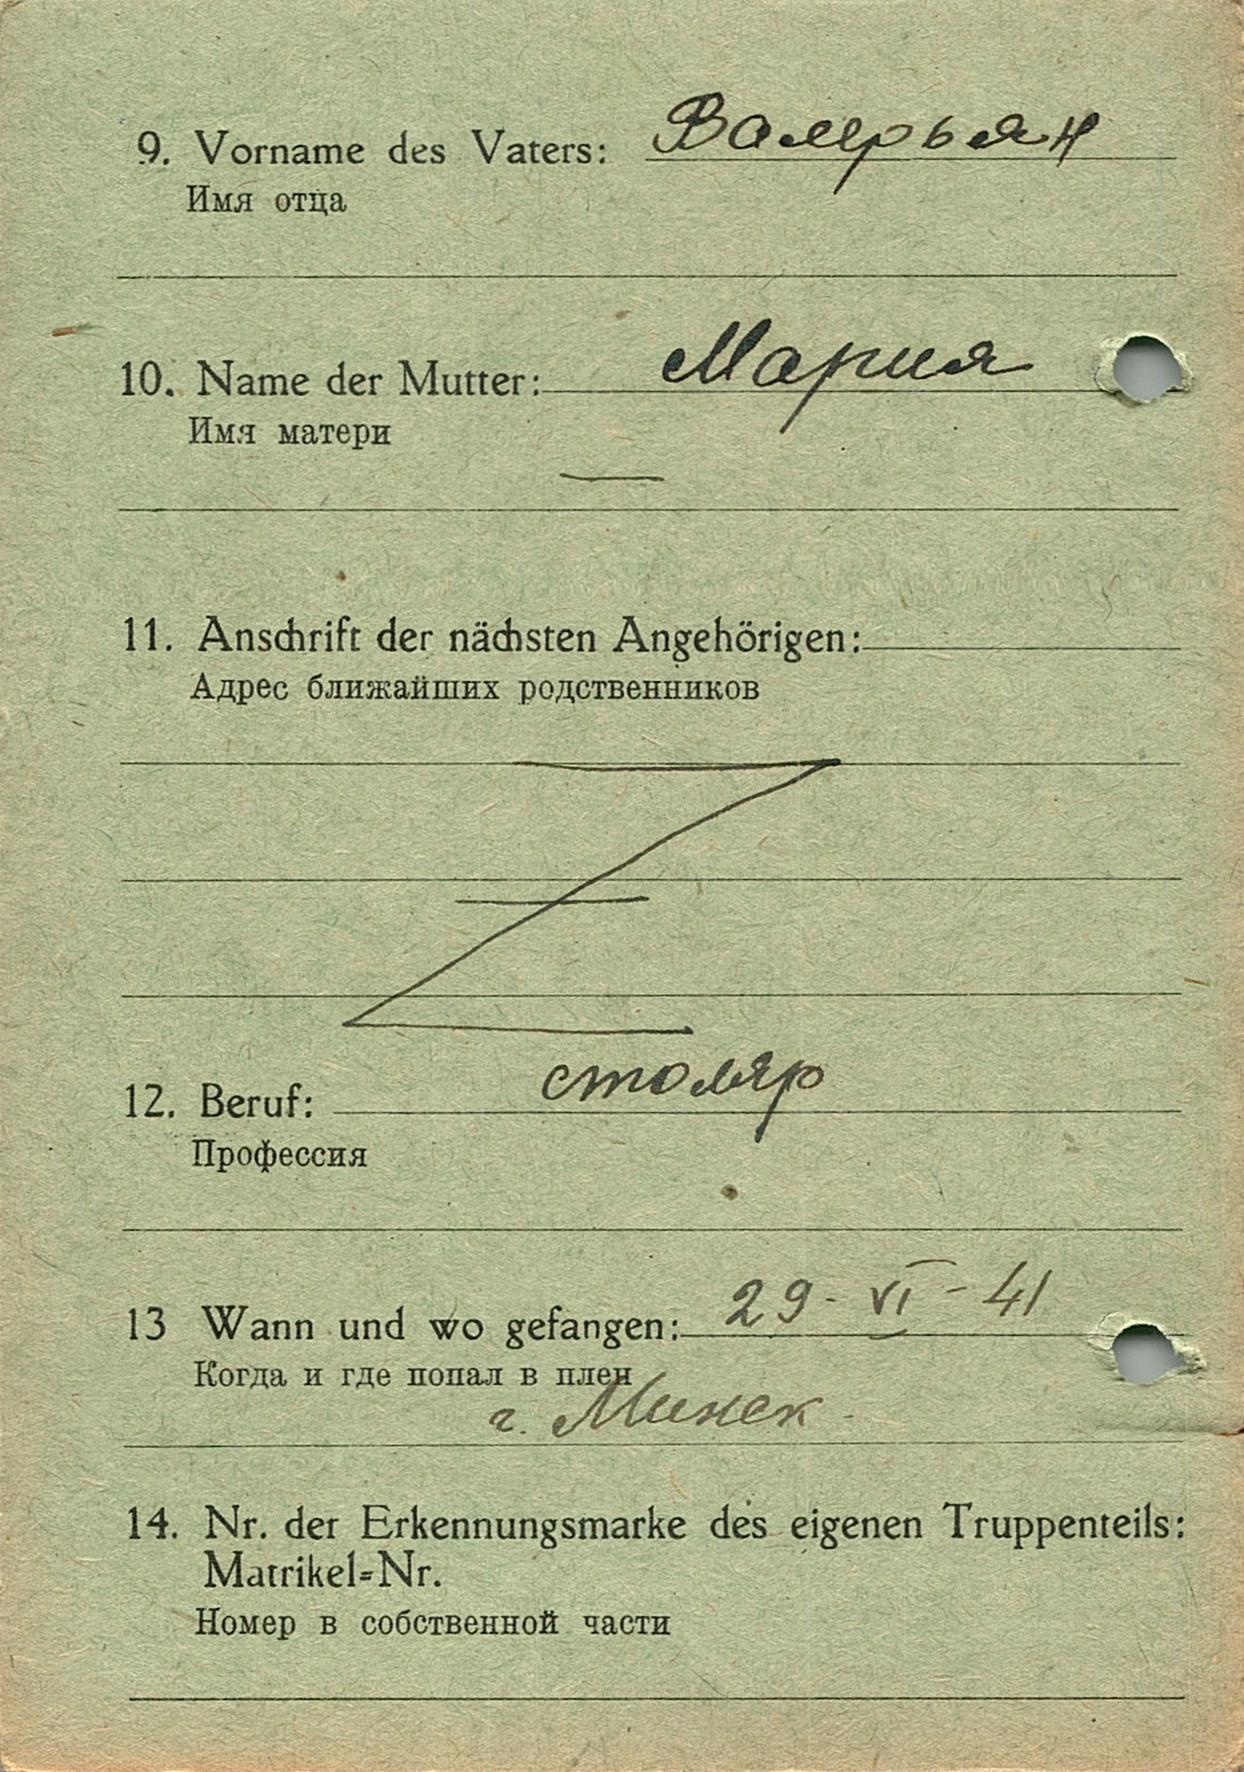 9. Vorname des Vaters: Валерьян
Имя отца
10. Name der Mutter: Мария
Имя матери
—
11. Anschrift der nächsten Angehörigen:
Адрес ближайших родственников
12. Beruf: столяр
Профессия
13 Wann und wo gefangen: 29-VI-41
Когда и где попал в плен
г. Минск
14. Nr. der Erkennungsmarke des eigenen Truppenteils:
Matrikel=Nr.
Номер в собственной части